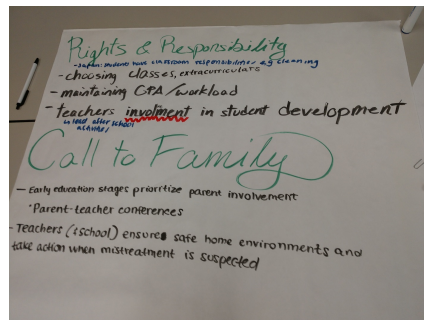 Rights & Responsibility
students have classroom responsibilities eg cleaning
- choosing classes, extracurriculars
- maintaining GPA/workload
- teachers involment in student development
after school
activities
Call to Family
- Early education stages prioritize parent involvement
• Parent-teacher conferences
- Teachers (+school) ensures safe home environments and
take action when mistreatment is suspected